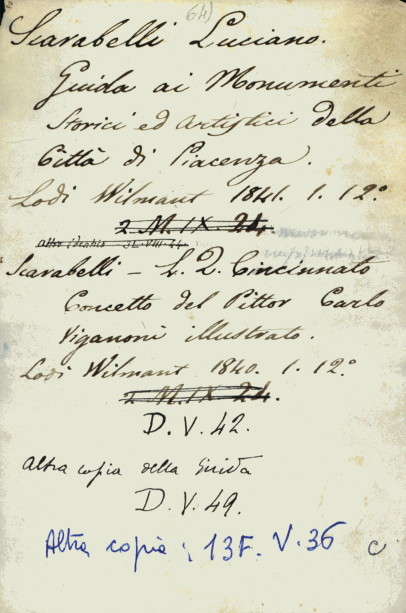 64)
Scarabelli Luciano.
Guida ai Monumenti
Storici ed Artistici della
Città di Piacenza.
Lodi Wilmant 1841. 1. 12.°
2. M. IX. 24.
Altro identico 3L.VIII.34
Scarabelli – L. Q. Cincinnato
Concetto del Pittor Carlo
Viganoni illustrato.
Lodi Wilmant 1840. 1. 12.°
2 M. IX. 24.
D. V. 42.
Altra copia della Guida
D. V. 49.
Altra copia: 13F. V. 36 c